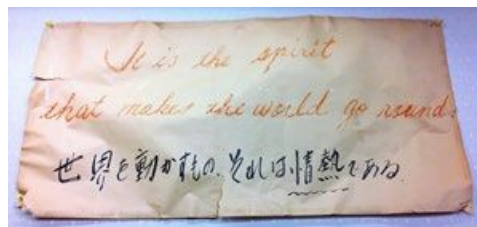 It is the spirit
that makes the world go round.
世界を動かすもの、それは情熱である